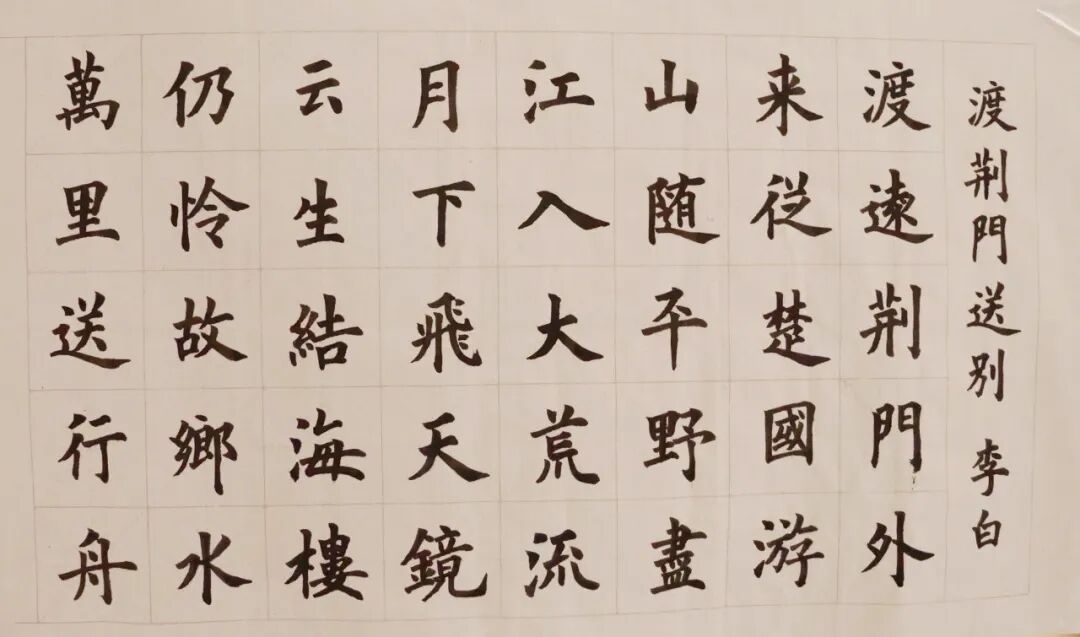 渡荆門送别 李白
渡逺荆門外
来従楚國游
山随平野盡
江入大荒流
月下飛天鏡
云生結海樓
仍怜故鄉水
萬里送行舟